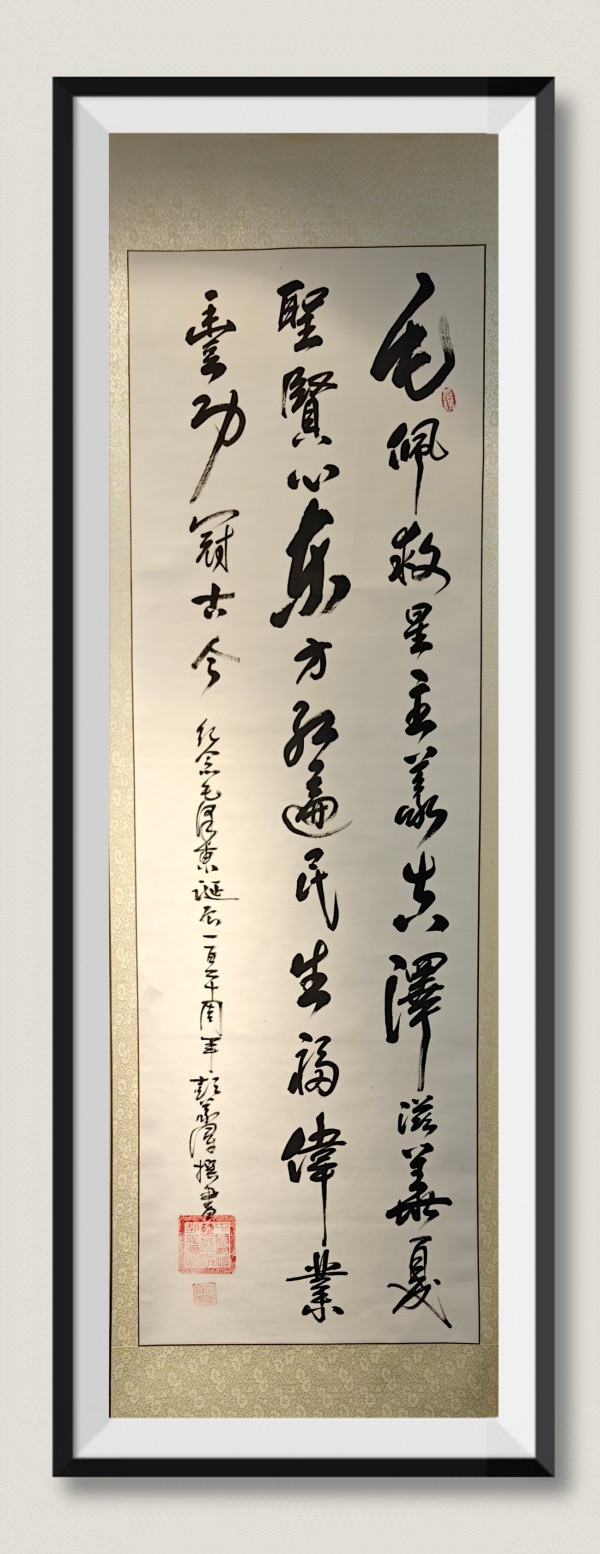 毛佩救星主義真澤滋華夏
聖賢心東方紅遍民生福偉業
豐功冠古今
紀念毛澤東誕辰一百二十周年彭撰書